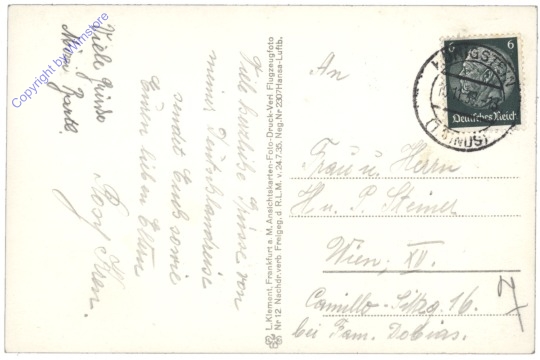 Viele Grüsse
Copyright by Wimstore
Viele herzliche Grüsse von
meiner Deutschlandreise
sendet Euch sowie
Euren lieben Eltern
L. Klement, Frankfurt a. M. Ansichtskarten-Foto-Druck-Verl Flugzeugfoto
Nr 12 Nachdr. verb Freigeg. d R.L.M. v. 24.7.35. Neg. Nr 2307 Hansa-Luftb.
6 6
Deutsches Reich
(TAUNUS)
An
Frau u. Herrn
H. u. P. Steiner
Wien, XV.
Camillo-Sitteg. 16.
bei Fam. Dobias.